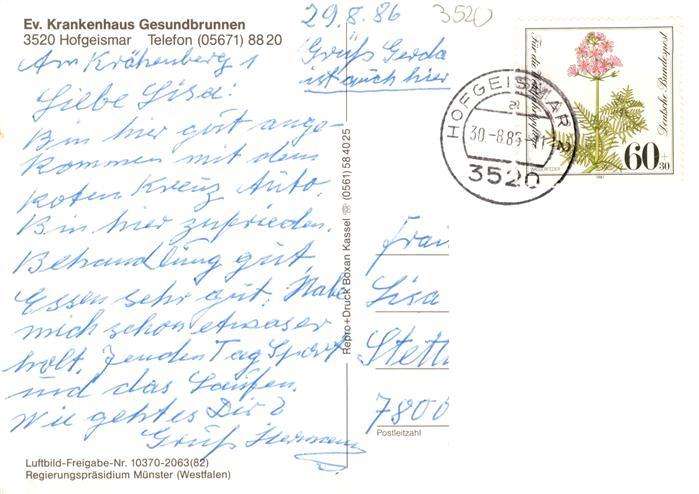 Ev. Krankenhaus Gesundbrunnen
3520 Hofgeismar Telefon (05671) 88 20
Am Krähenberg 1
Liebe Lisa!
Bin hier gut ange-
kommen mit dem
Roten Kreuz Auto.
Bin hier zufrieden.
Behandlung gut,
Essen sehr gut. Habe
mich schon etwas er
holt. Jenden Tag Sport
und das Laufen.
Wie geht es Dir?
Gruß Hermann
Luftbild-Freigabe-Nr. 10370-2063(82)
Regierungspräsidium Münster (Westfalen)
29.8.86
3520
Gruß Gerda
ist auch hier
Repro+Druck Boxan Kassel ☏ (0561) 58 40 25
HOFGEISMAR 2
30.-8.86
3520
Deutsche Bundespost
60+30
1981
Frau
Lisa
Stett
7800
Postleitzahl